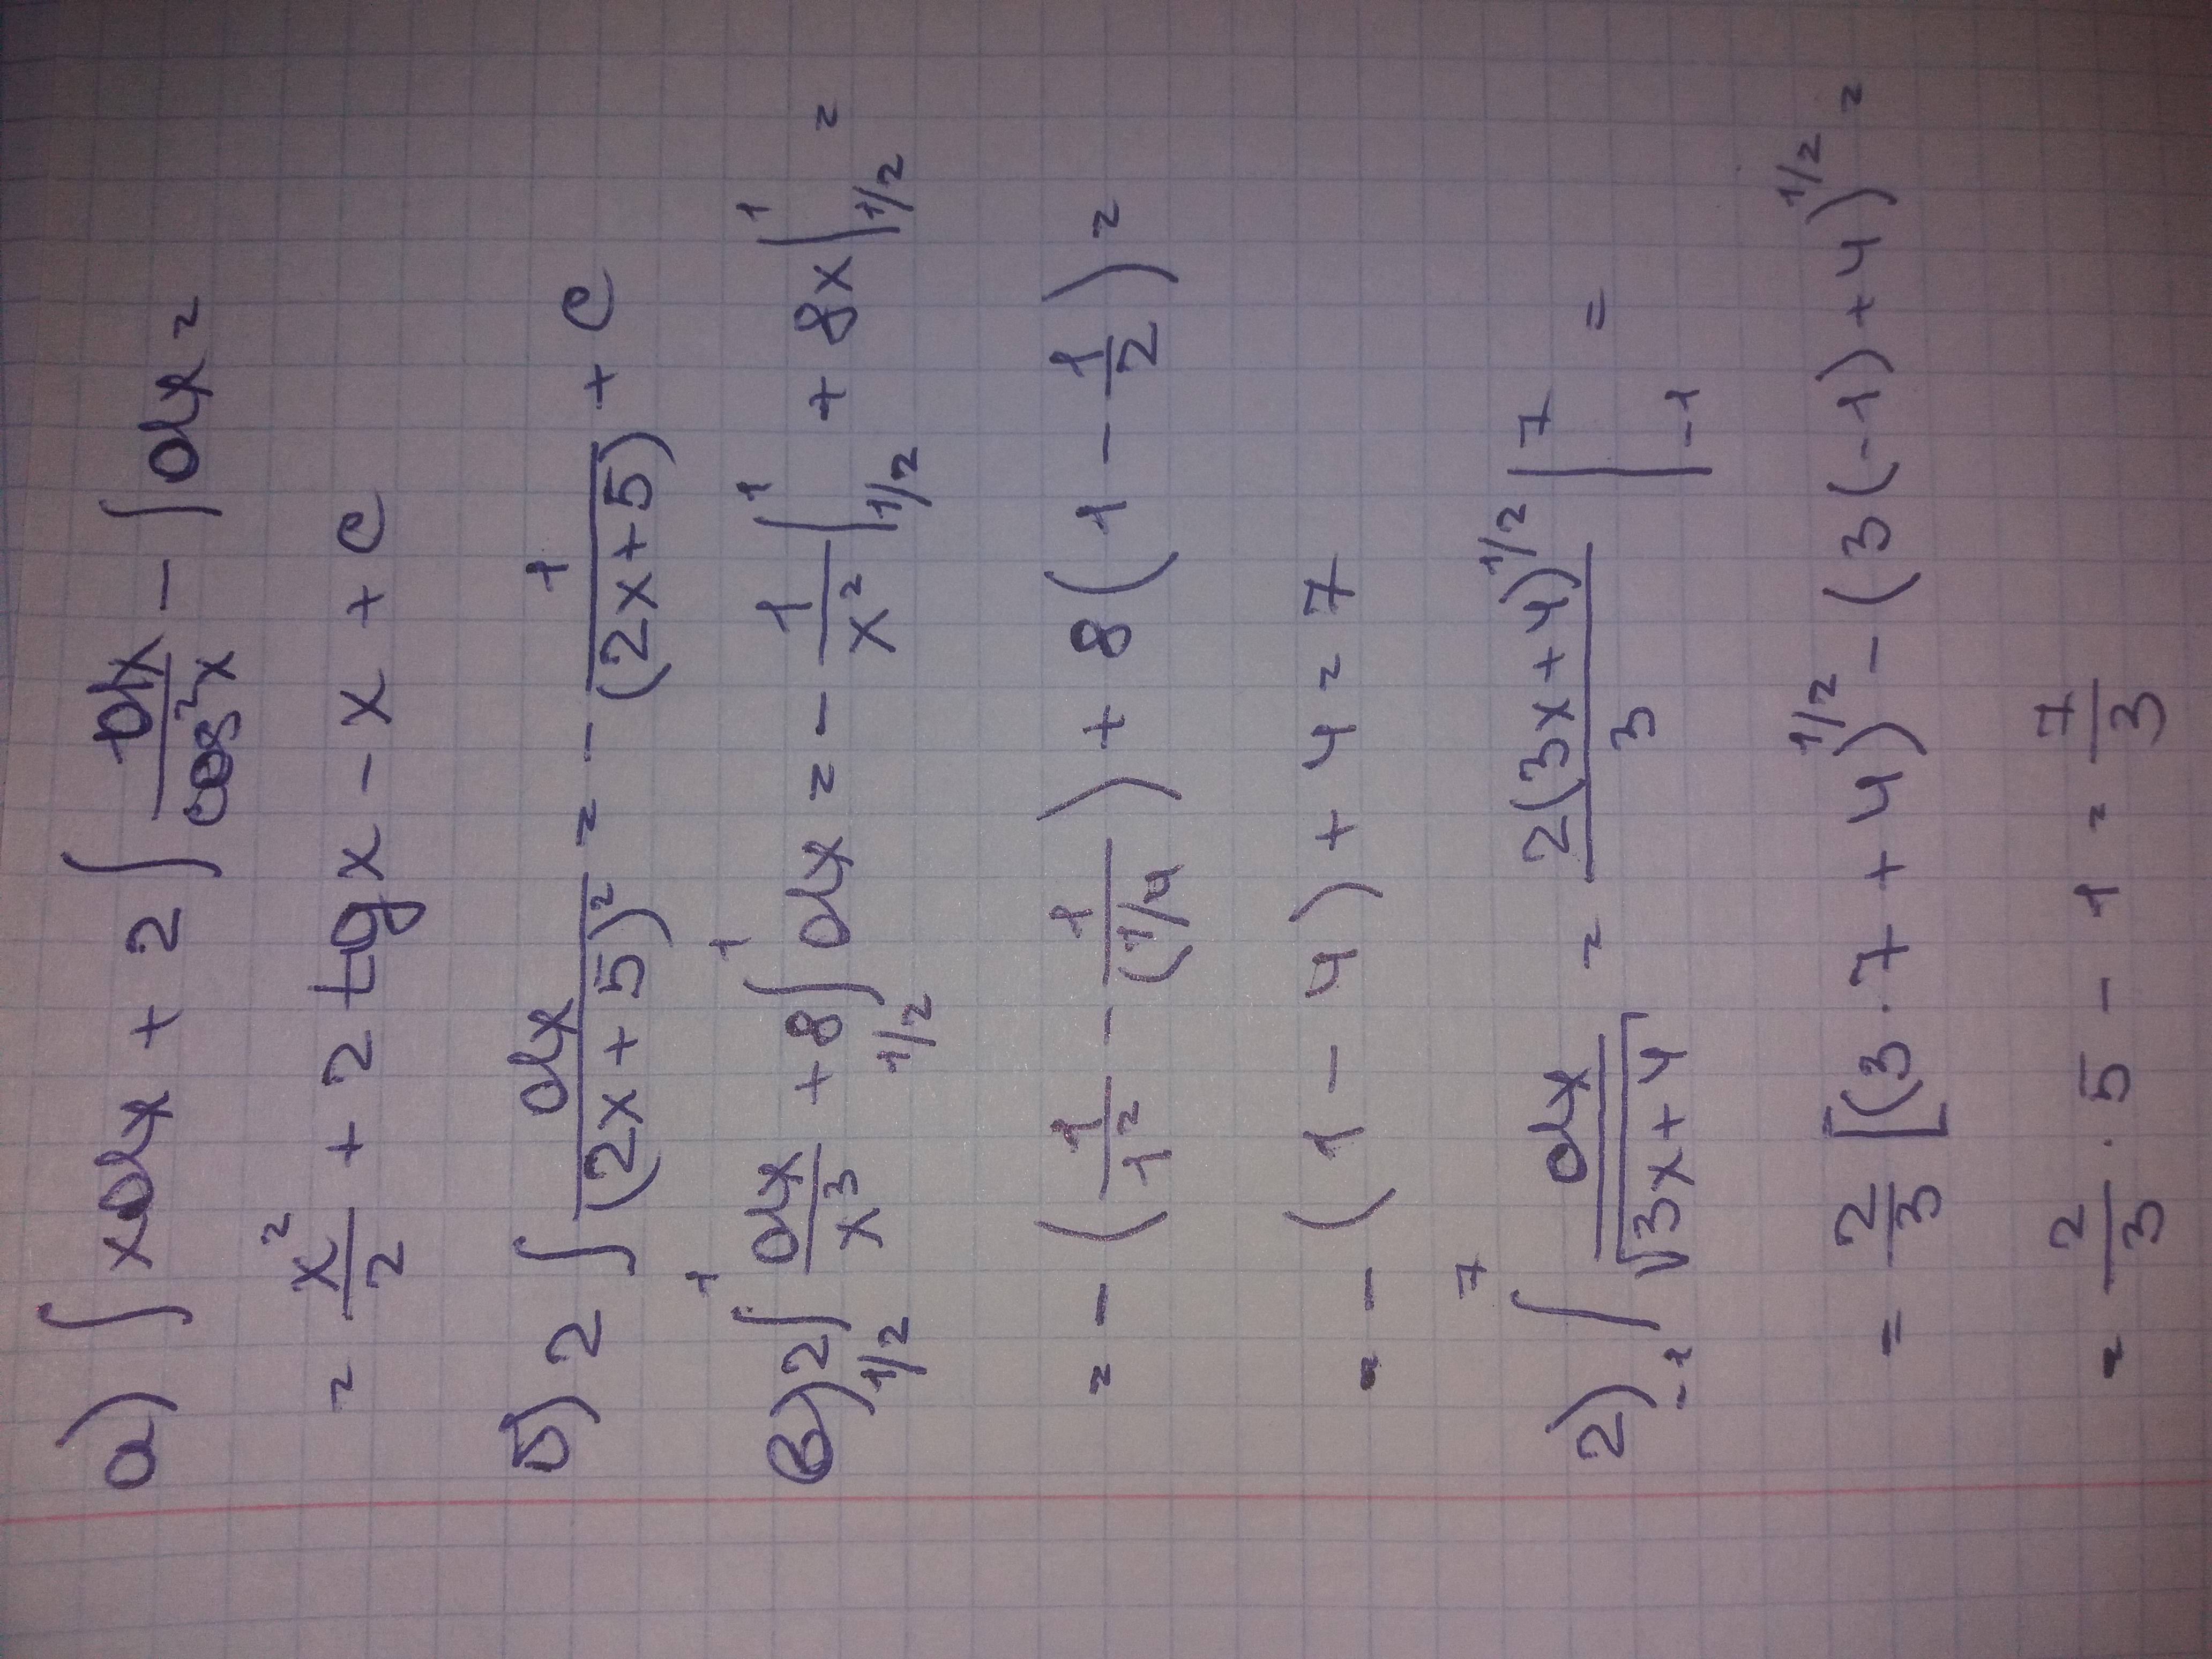 а) ∫ xdx + 2 ∫ dx/cos²x − ∫ dx =
= x²/2 + 2 tg x − x + C
б) 2 ∫ dx/(2x+5)² = − 1/(2x+5) + C
в) 2 ∫_{1/2}^{1} dx/x³ + 8 ∫_{1/2}^{1} dx = − 1/x² |_{1/2}^{1} + 8x |_{1/2}^{1} =
= − (1/1² − 1/(1/4)) + 8(1 − 1/2) =
= − (1 − 4) + 4 = 7
г) ∫_{-1}^{7} dx/√(3x+4) = 2(3x+4)^{1/2}/3 |_{-1}^{7} =
= 2/3 [(3·7+4)^{1/2} − (3(−1)+4)^{1/2} =
= 2/3 · 5 − 1 = 7/3